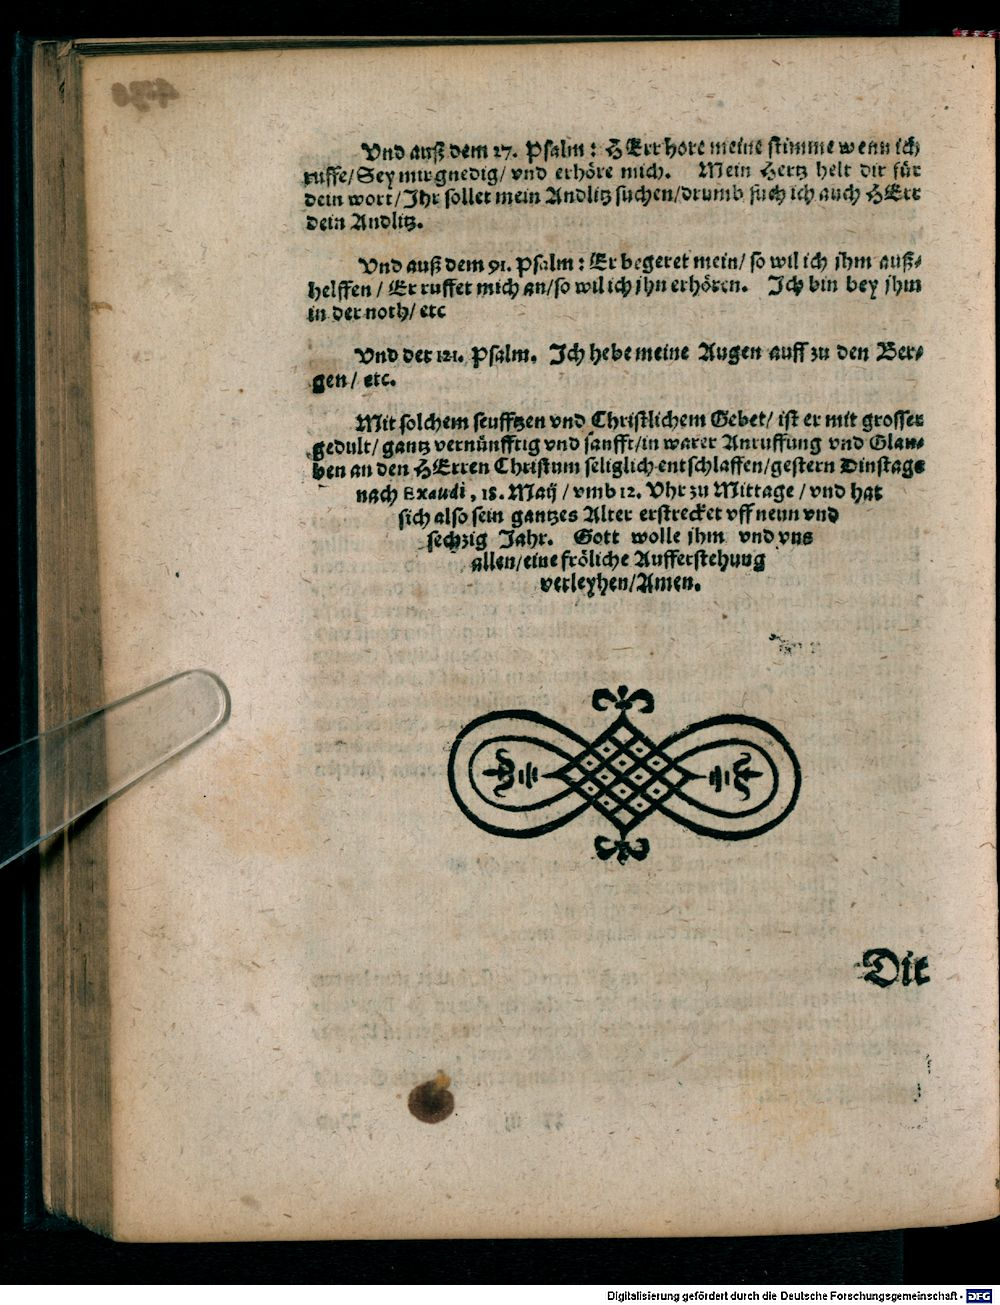 Vnd auß dem 27. Psalm: HErr hore meine stimme wenn ich
ruffe/Sey mir gnedig/ vnd erhöre mich. Mein Hertz helt dir für
dein wort/Ihr sollet mein Andlitz suchen/drumb such ich auch HErr
dein Andlitz.
Vnd auß dem 91. Psalm: Er begeret mein/ so wil ich jhm auß-
helffen/ Er ruffet mich an/so wil ich jhn erhören. Ich bin bey jhm
in der noth/ etc
Vnd der 121. Psalm. Ich hebe meine Augen auff zu den Ber-
gen/ etc.
Mit solchem seufftzen vnd Christlichem Gebet/ ist er mit grosser
gedult/ gantz vernünfftig vnd sanfft/in warer Anruffung vnd Glau-
ben an den HErren Christum seliglich entschlaffen/gestern Dinstags
nach Exaudi, 18. Maij/ vmb 12. Vhr zu Mittage/ vnd hat
sich also sein gantzes Alter erstrecket vff neun vnd
sechzig Jahr. Gott wolle jhm vnd vns
allen/eine fröliche Aufferstehung
verleyhen/Amen.
Die
Digitalisierung gefördert durch die Deutsche Forschungsgemeinschaft - DFG